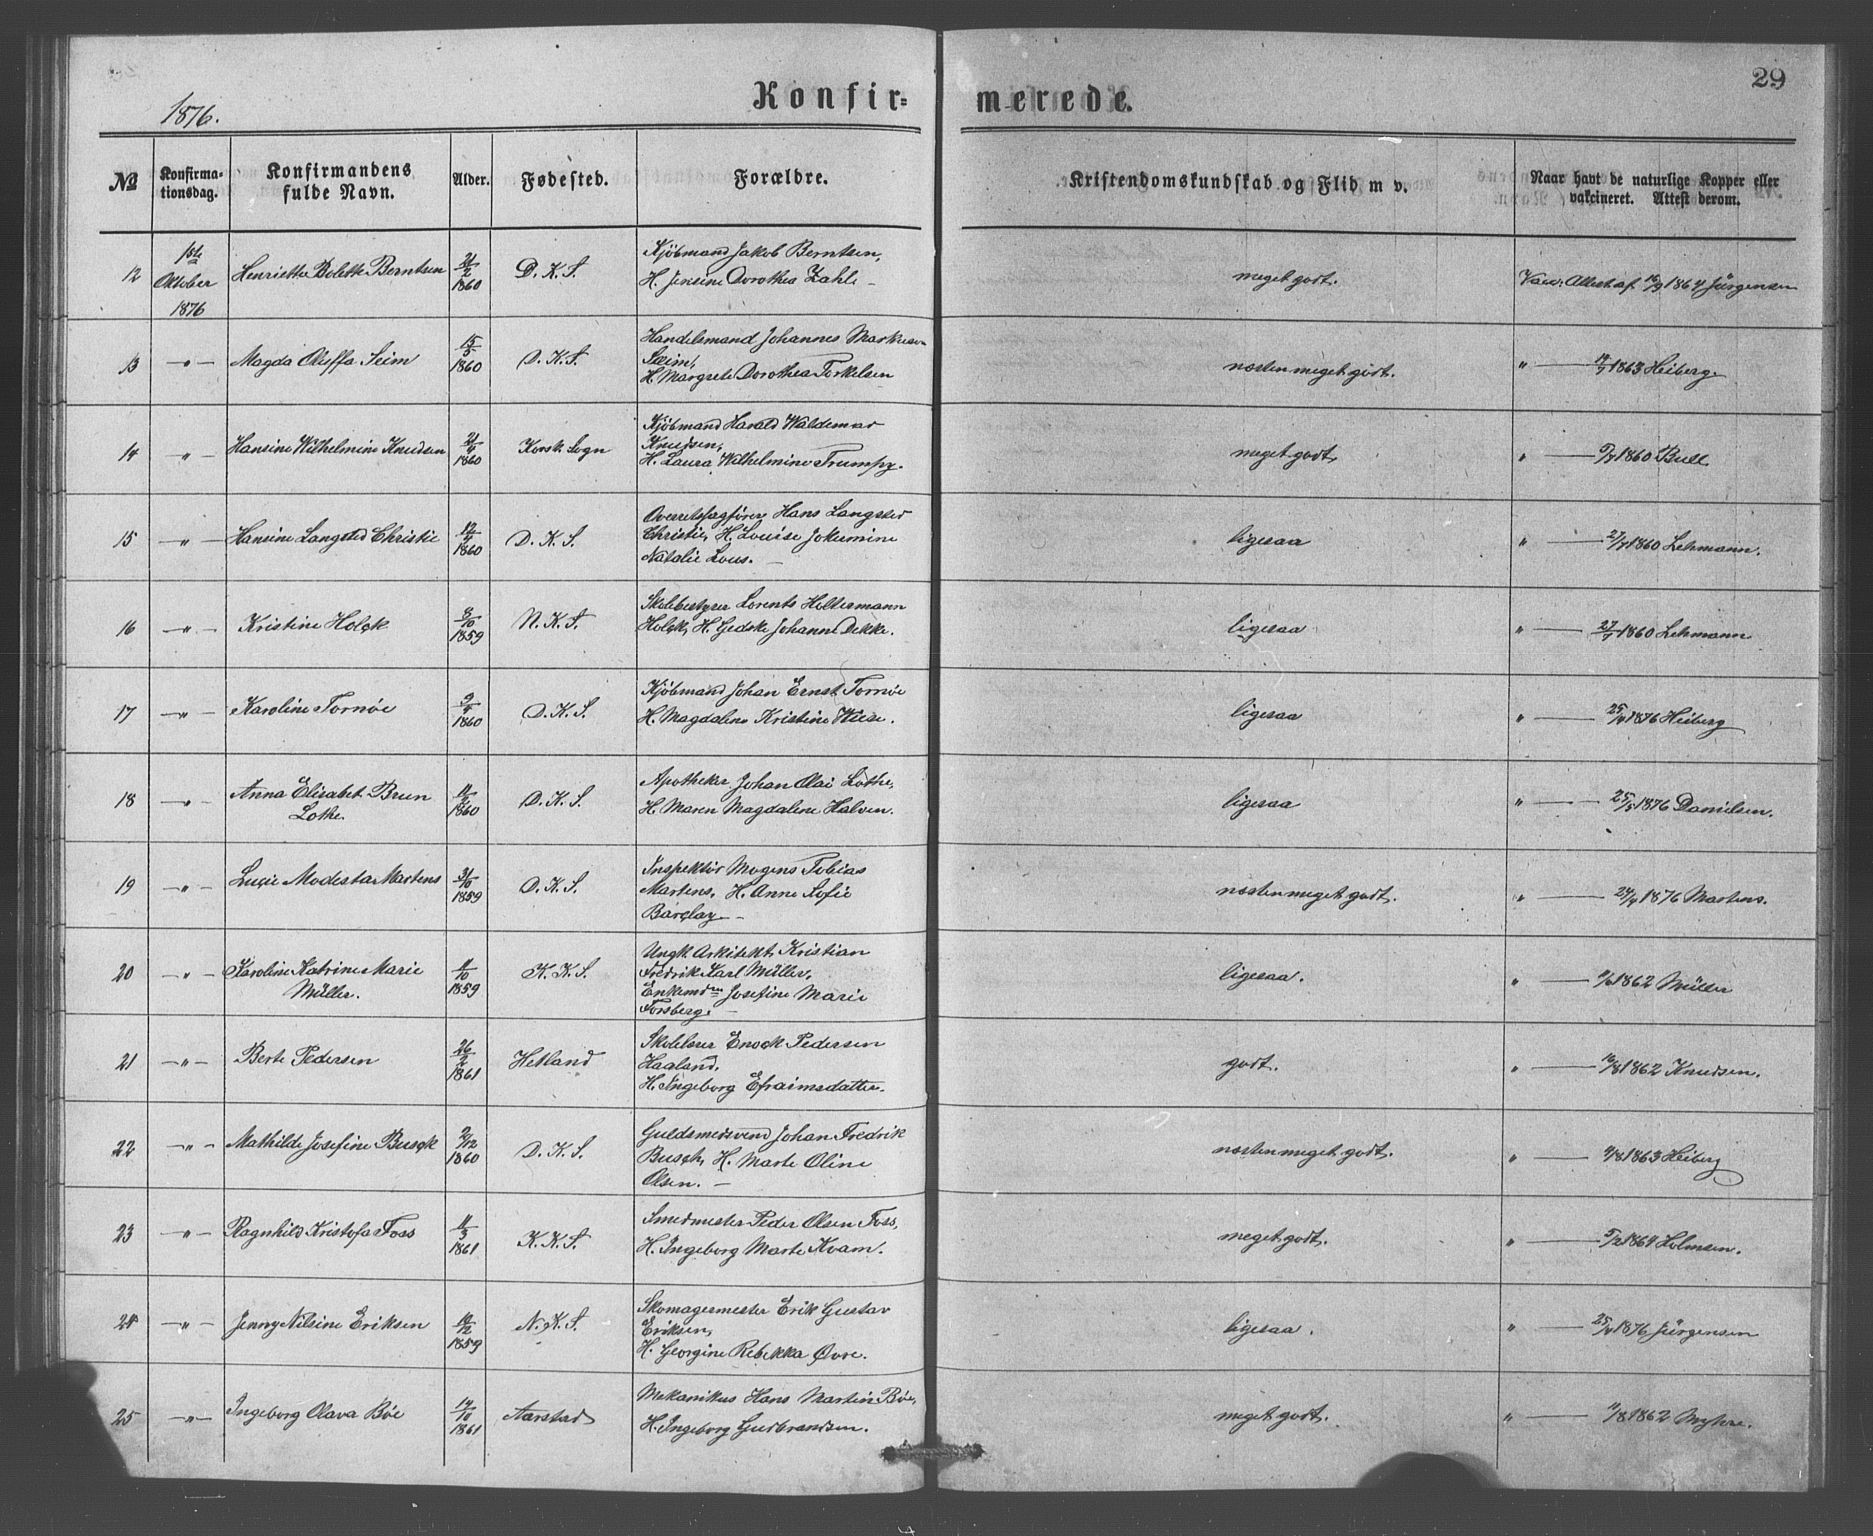 1876.
Konfir=
merede.
29
No
Konfirma-
tionsdag.
Konfirmandens
fulde Navn.
Alder.
Fødested.
Forældre.
Kristendomskundskab og Flid m v.
Naar havt de naturlige Kopper eller
vakcineret. Attest derom.
12
1ste
Oktober
1876
Henriette Bolette Berntsen
21/2
1860
D. K. S.
Kjöbmand Jakob Berntsen,
H. Jensine Dorothea Zahl. -
meget godt.
Vacc. Attest af 16/9 1864 Jürgensen
13
-"-
Magda Oluffa Seim
15/5
1860
D. K. S.
Handelsmand Johannes Markusen
Sæim,
H. Margrete Dorothea Torkelsen
næsten meget godt.
" — 1863 Heiberg.
14
-"-
Hansine Wilhelmine Knudsen
21/4
1860
Korsk. Sogn
Kjöbmand Harald Waldemar
Knudsen,
H. Laura Wilhelmine Trumpy.
meget godt.
" — 1860 Bull
15
-"-
Hansine Langsted Christie
12/4
1860
D. K. S.
Overretssagförer Hans Langsted
Christie, H. Louise Jokumine
Natalie Lous. -
ligesaa
" — 27/7 1860 Lehmann.
16
-"-
Kristine Holck
8/10
1859
N. K. S.
Skolebestyrer Lorents Holtermann
Holck, H. Gedske Johanne Dekke.
ligesaa
" — 27/7 1860 Lehmann
17
-"-
Karoline Tornöe
9/4
1860
D. K. S.
Kjöbmand Johan Ernst Tornöe
H. Magdalene Kristine Wiese.
ligesaa
" — 25/4 1876 Heiberg
18
-"-
Anna Elisabet Brun
Lothe.
11/2
1860
D. K. S.
Apotheker Johan Olai Lothe,
H. Maren Magdalene Halven.
ligesaa
" — 25/5 1876 Danielsen.
19
-"-
Lucie Modesta Martens
31/10
1859
D. K. S.
Inspektör Mogens Tobias
Martens, H. Anne Sofie
Barclay. -
næsten meget godt.
" — 24/4 1876 Martens.
20
-"-
Karoline Katrine Marie
Müller.
11/10
1859
K. K. S.
Ungk. Arkitekt Kristian
Fredrik Karl Müller,
Josefine Marie
Forsberg. -
ligesaa.
" — 1862 Müller
21
-"-
Berte Pedersen
26/2
1861
Hetland
Skolelærer Enock Pedersen
Haaland,
H. Ingeborg Efraimsdatter.
godt.
" — 16/8 1862 Knudsen.
22
-"-
Mathilde Josefine Busck
2/12
1860
D. K. S.
Guldsmedsvend Johan Fredrik
Busch, H. Marte Oline
Olsen. -
næsten meget godt.
" — 1863 Heiberg
23
-"-
Ragnhild Kristofa Foss
11/3
1861
K. K. S.
Smedmester Peder Olsen Foss,
H. Ingeborg Marte Kvam.
meget godt.
" — 5/2 1864 Holmsen.
24
-"-
Jenny Nilsine Eriksen
12/12
1859
N. K. S.
Skomagermester Erik Gustav
Eriksen,
H. Georgine Rebekka Øvre.
ligesaa.
" — 25/4 1876 Jürgensen
25
-"-
Ingeborg Olava Böe
14/10
1861
Aarstad
Mekanikus Hans Martin Böe,
H. Ingeborg Gudbrandsen.
meget godt.
" — 11/8 1862 Myhre.